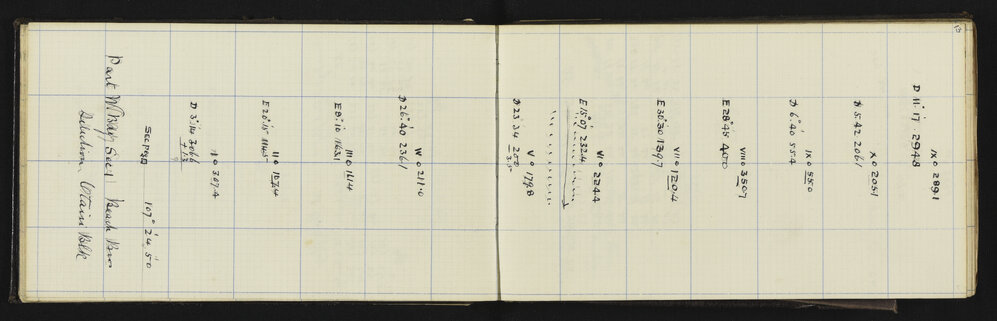 Part W Bay Sec 1 Beach Bros
Selection Otaiu Blk
See page 107° 24' 50
D 3° 14 306.6
+ 1.3
I 0 307.4
E 20° 15 114.5
II 0 107.4
E 8° 10 163.1
III 0 161.4
D 26° 40 236.1
IV 0 211.0
D 23° 34 200
– 3.05
V 0 179.8
E 15° 07' 232.4
VI 0 224.4
E 30° 30 139.7
VII 0 120.4
E 28° 45 400
VIII 0 350.7
D 6° 40 55.4
IX 0 55.0
D 5.42 206.1
X 0 205.1
D 11° 17' 294.8
IX 0 289.1